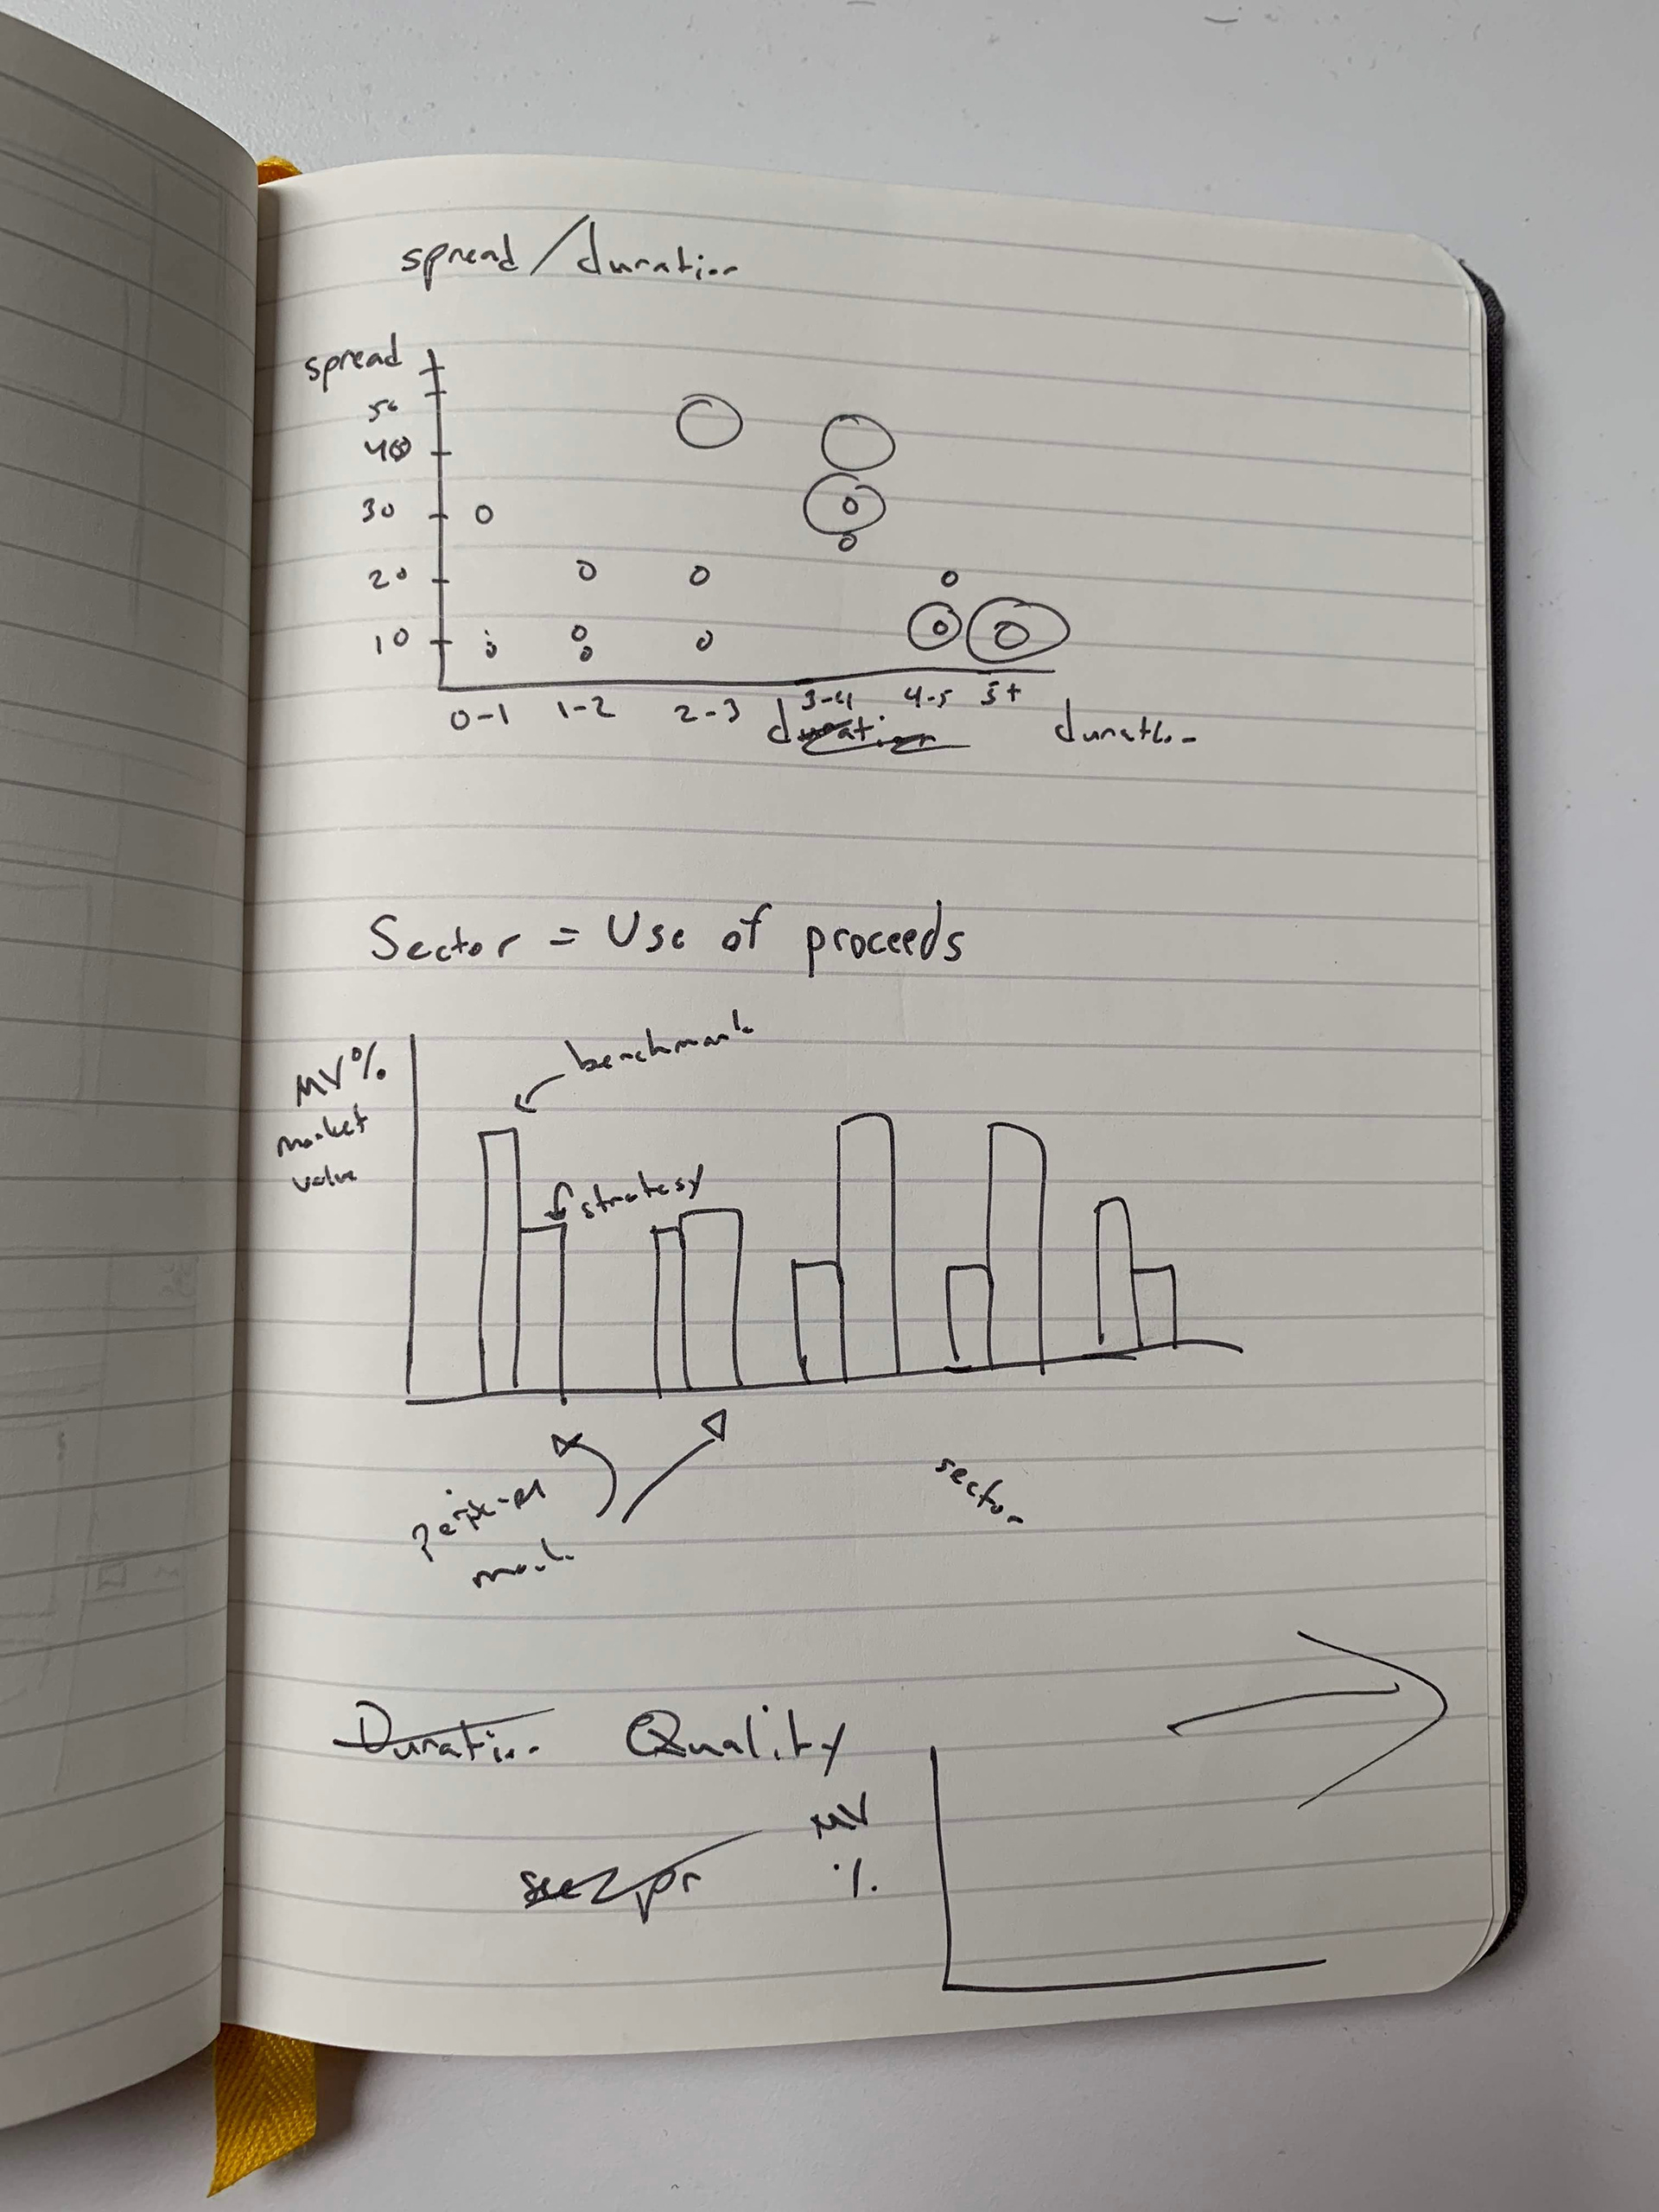 spread/duration
spread
50
40
30
20
10
0-1 1-2 2-3 3-4 4-5 5+
duration duration
Sector = Use of proceeds
MV%
market
value
benchmark
strategy
sector
Duration Quality
MV
%